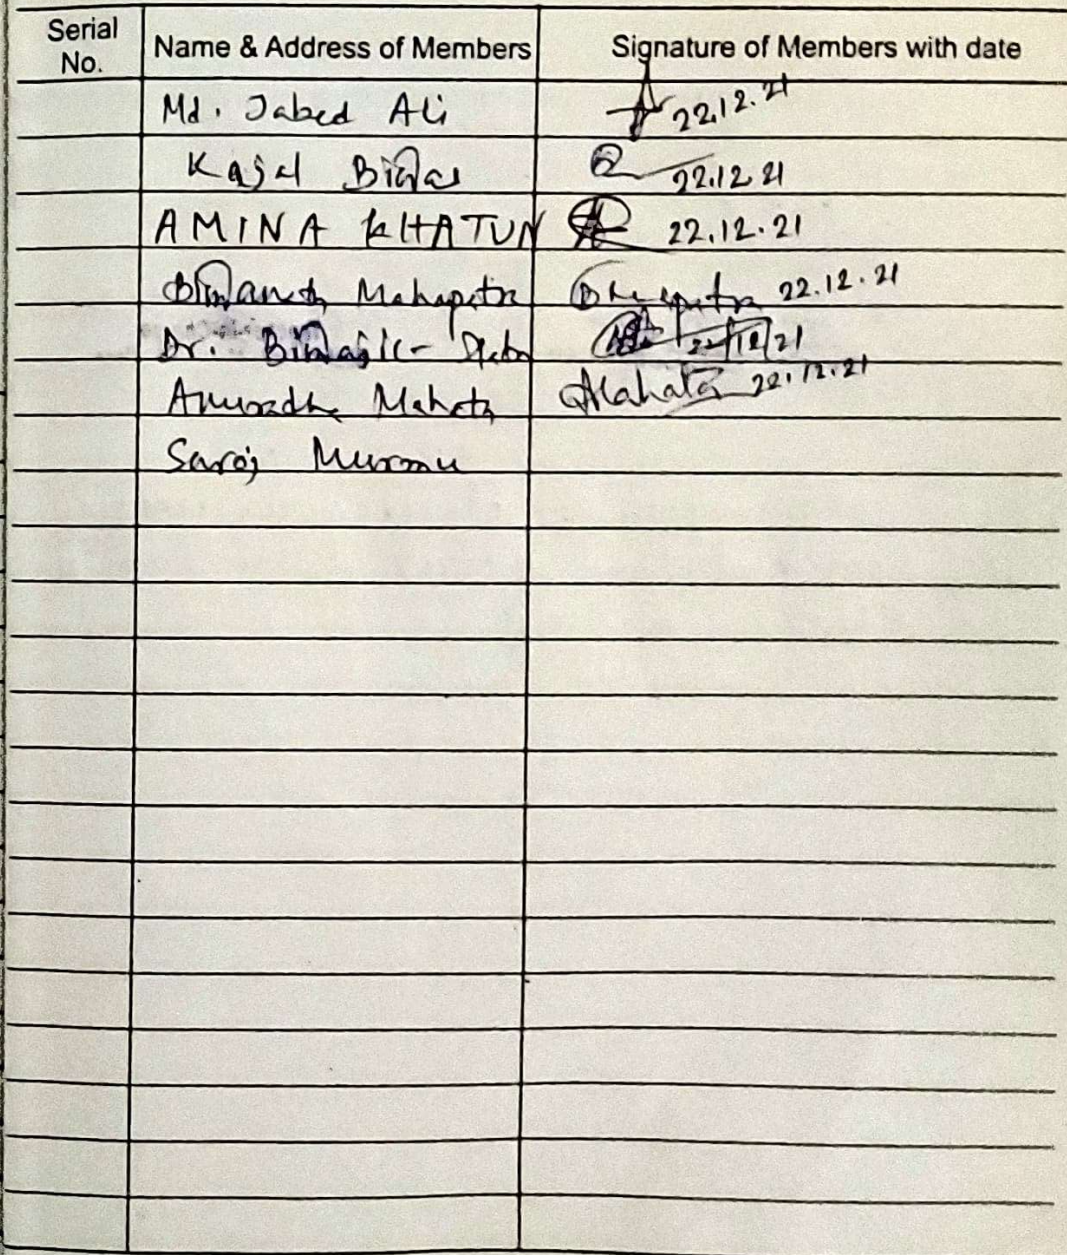 Serial No. Name & Address of Members Signature of Members with date
Md. Jabed Ali 22.12.21
Kajal Biswas 22.12.21
AMINA KHATUN 22.12.21
Mahapatra 22.12.21
Dr. 22/12/21
Anuradha Mahata AMahata 22.12.21
Saroj Murmu